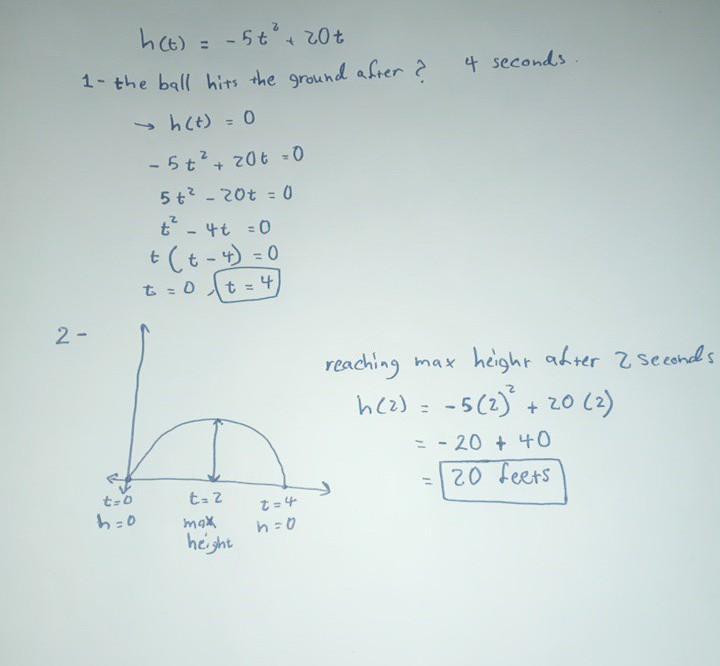 h(t) = -5t² + 20t
1- the ball hits the ground after ? 4 seconds.
→ h(t) = 0
-5t² + 20t = 0
5t² - 20t = 0
t² - 4t = 0
t(t-4) = 0
t = 0, t = 4
2-
reaching max height after 2 seconds
h(2) = -5(2)² + 20(2)
= -20 + 40
= 20 feets
t=0
h=0
t=2
max
height
t=4
h=0